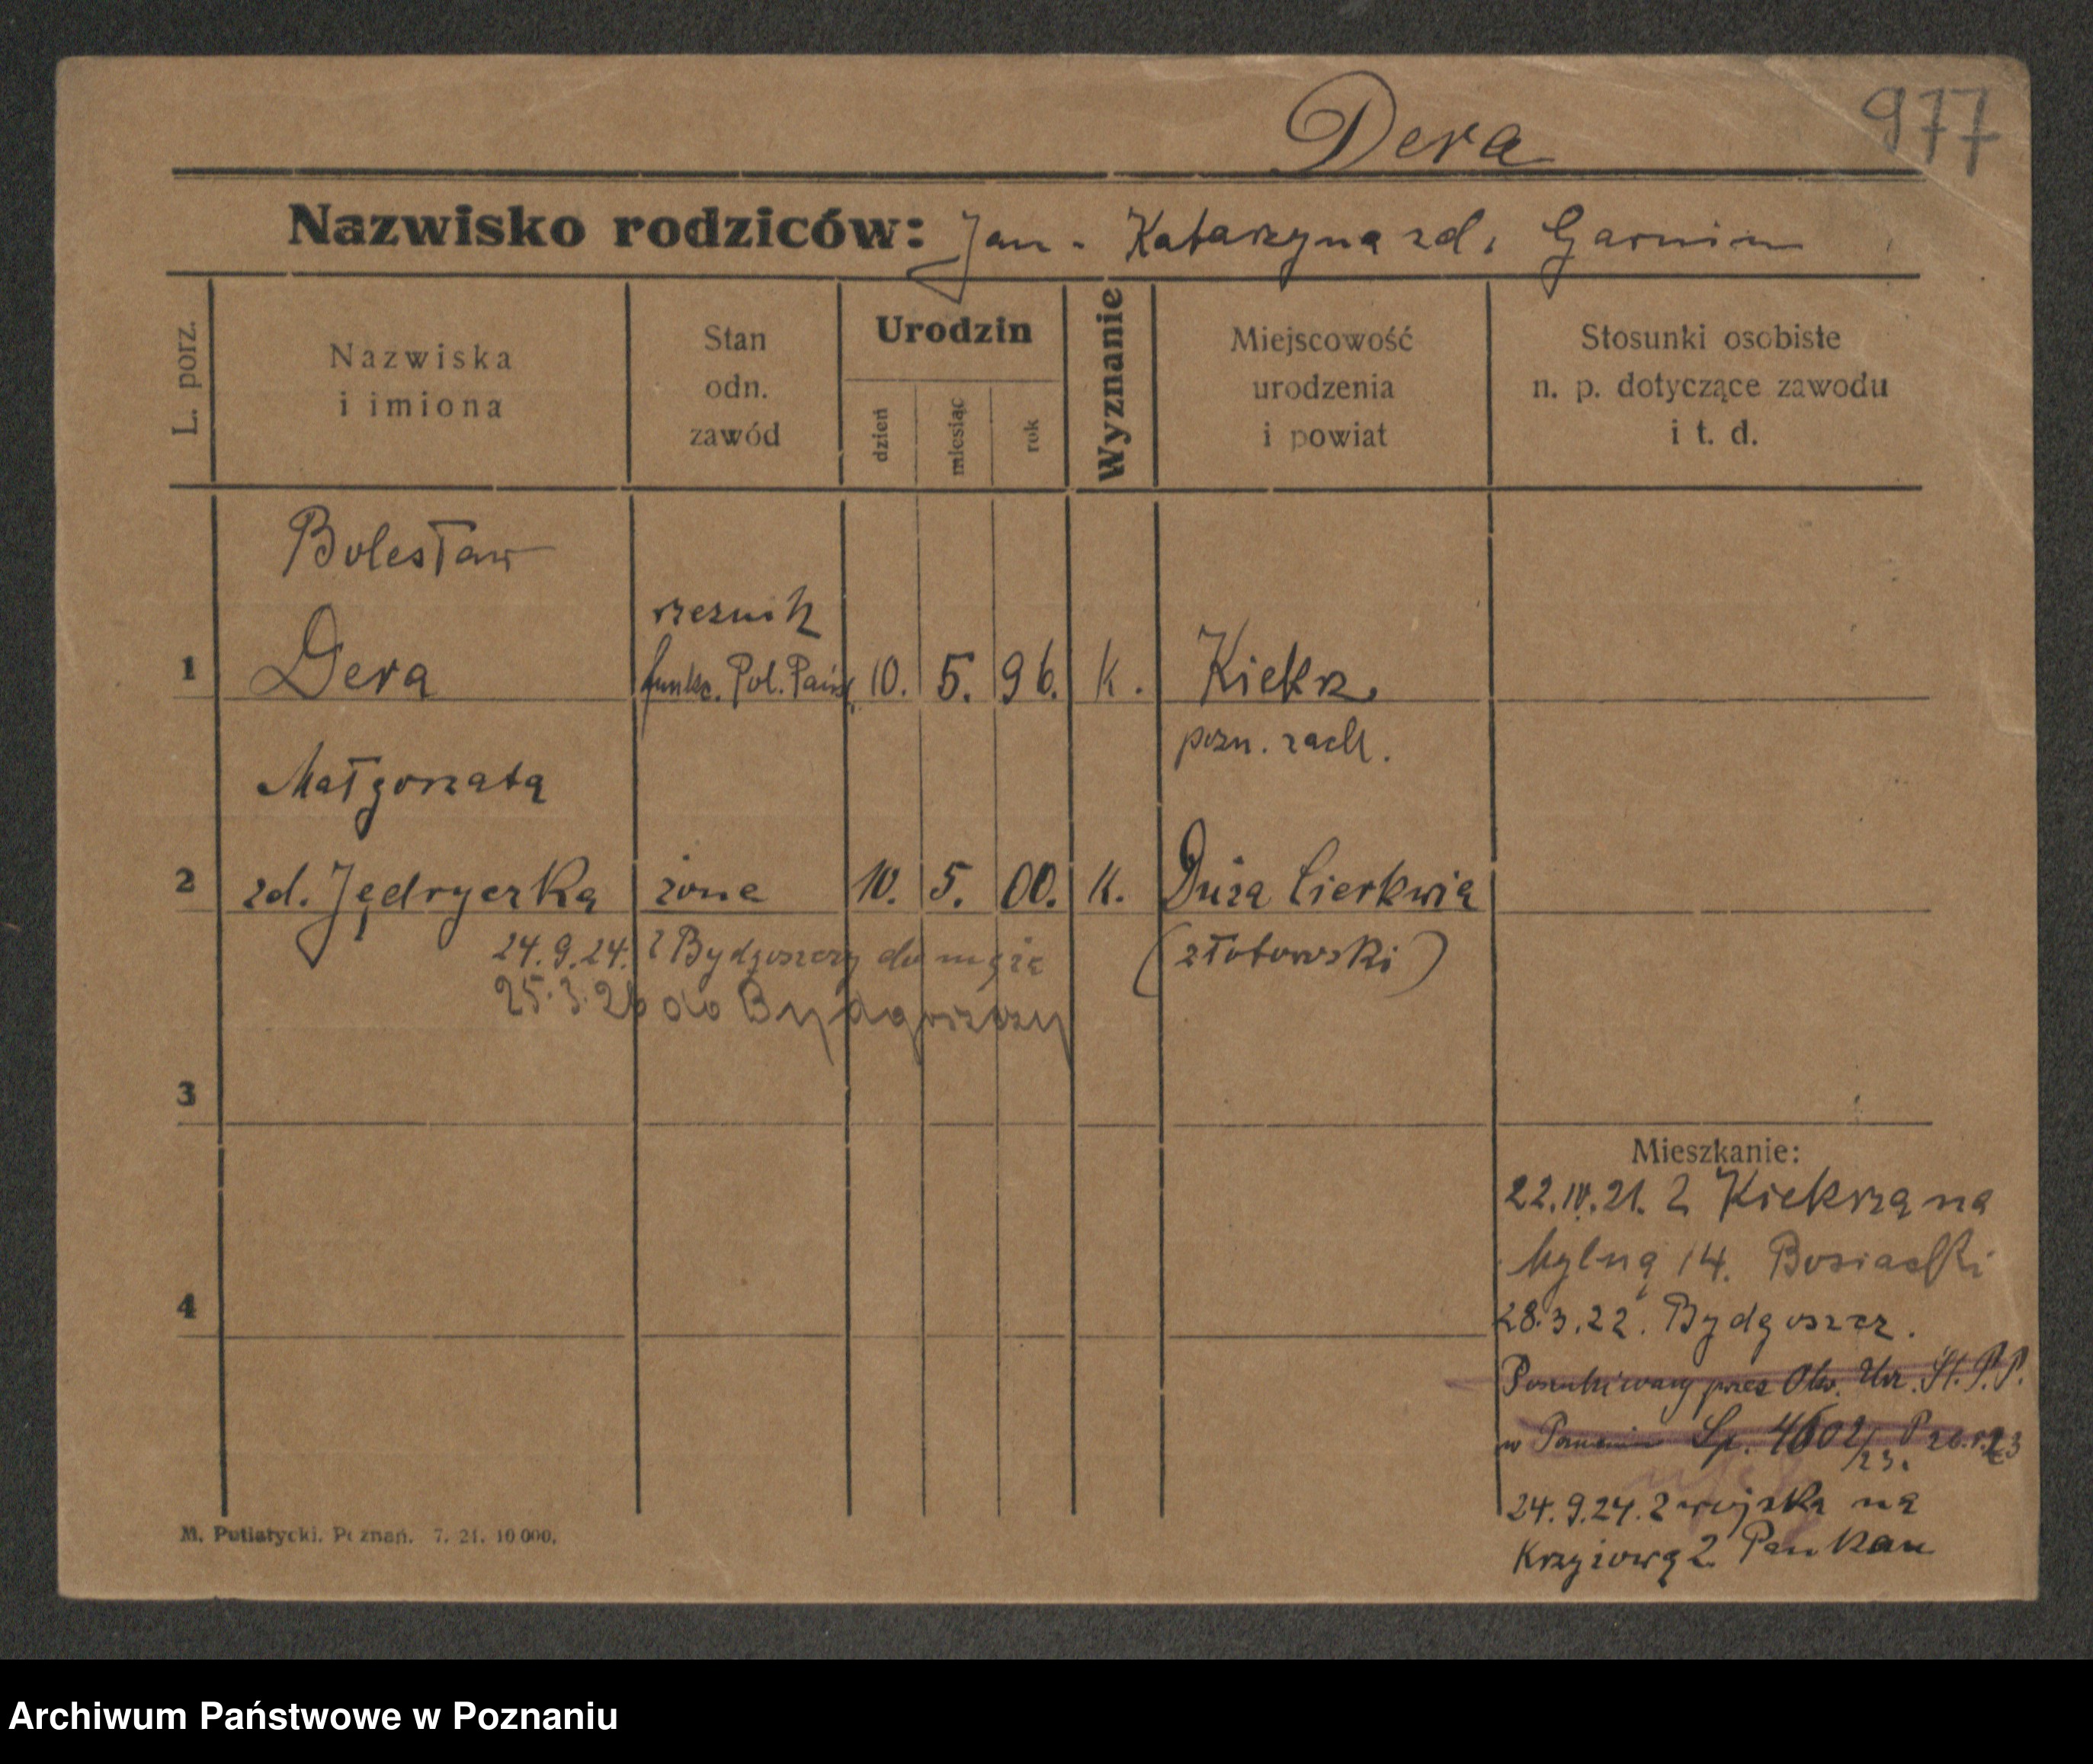 Dera
977
Nazwisko rodziców: Jan - Katarzyna zd. Garnim
L. porz.
Nazwiska
i imiona
Stan
odn.
zawód
Urodzin
dzień
miesiąc
rok
Wyznanie
Miejscowość
urodzenia
i powiat
Stosunki osobiste
n. p. dotyczące zawodu
i t. d.
Bolesław
rzeznik
1 Dera funkc. Pol. Państ. 10. 5. 96. k. Kiekrz.
pozn. zach.
Małgorzata
2 zd. Jędryczka żona 10. 5. 00. k. Duża Cierkwia
24.9.24. z Bydgoszczy do męża (złotowski)
25.3.26 do Bydgoszczy
3
Mieszkanie:
22.IV.21. z Kiekrza na
Mylną 14. Bosiacki
4
28.3.22. Bydgoszcz.
Poszukiwany przez Okr. Urz. Śl. P.P.
w Poznaniu Lp. 4602/23.
24.9.24. z wojska na
Krzyżową 2 Pankau
M. Putiatycki. Poznań. 7. 21. 10 000.
Archiwum Państwowe w Poznaniu